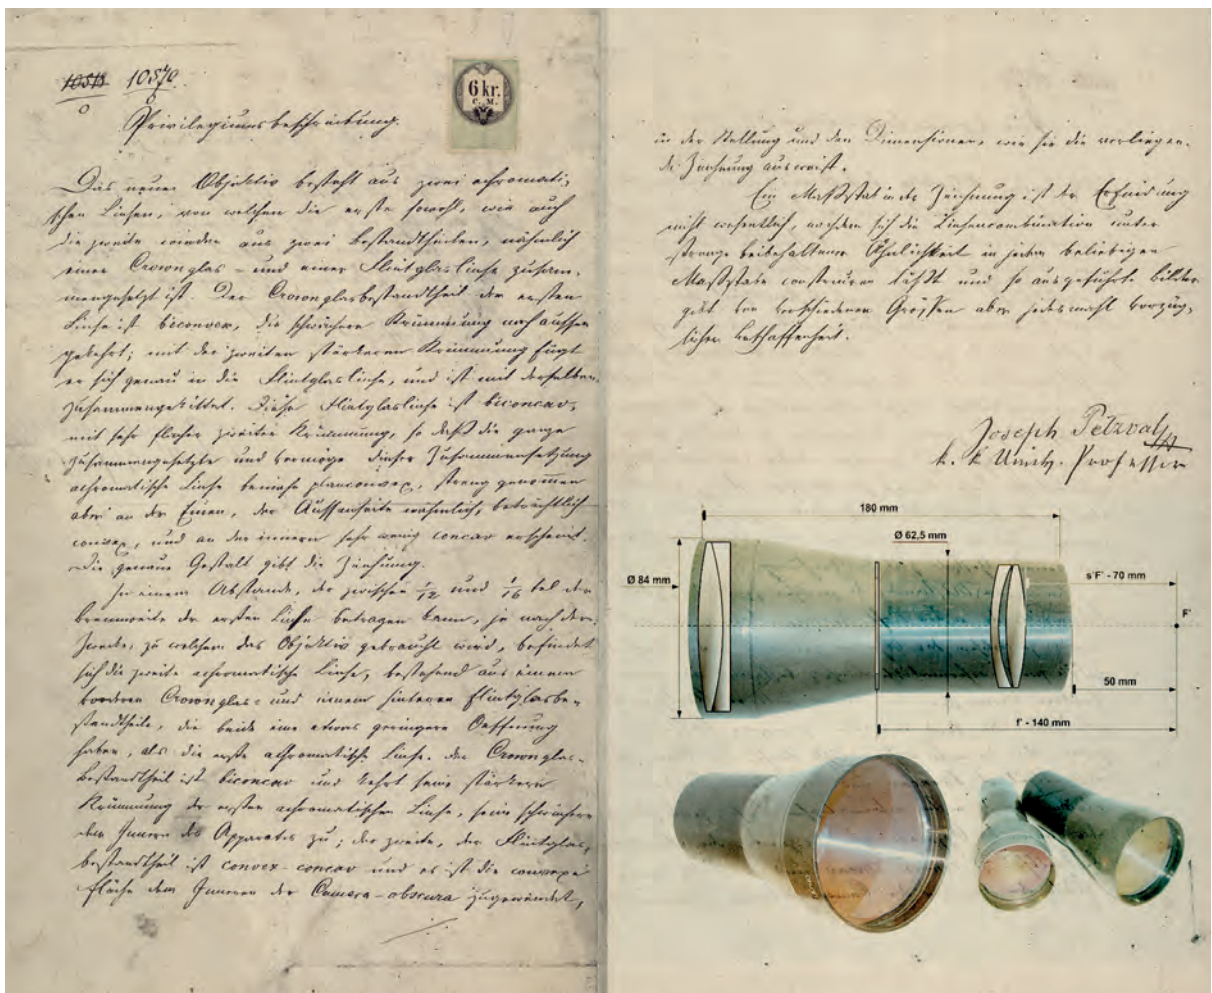 10518 10570.
6 kr.
C. M.
Privilegiumsbeschreibung.
Das neue Objektiv besteht aus zwei achromati-
schen Linsen, von welchen die erste sowohl, wie auch
die zweite wieder aus zwei Bestandtheilen, nähmlich
einer Crownglas- und einer Flintglaslinse zusam-
mengesetzt ist. Der Crownglasbestandtheil der ersten
Linse ist biconvex, die schwächere Krümmung nach aussen
gekehrt; mit der zweiten stärkeren Krümmung fügt
er sich genau in die Flintglaslinse, und ist mit derselben
zusammengekittet. Diese Flintglaslinse ist biconcav,
mit sehr flacher zweiter Krümmung, so daß die ganze
zusammengesetzte und vermöge dieser Zusammensetzung
achromatische Linse beinahe planconvex, streng genommen
aber an der Einen, der Aussenseite nähmlich, beträchtlich
convex, und an der innern sehr wenig concav erscheint.
Die genaue Gestalt gibt die Zeichnung.
In einem Abstande, der zwischen 1/12 und 1/16 tel der
Brennweite der ersten Linse betragen kann, je nach dem
Zwecke, zu welchem das Objektiv gebraucht wird, befindet
sich die zweite achromatische Linse, bestehend aus einem
vorderen Crownglas- und einem hinteren Flintglasbe-
standtheile, die beide eine etwas geringere Oeffnung
haben, als die erste achromatische Linse. Der Crownglas-
bestandtheil ist biconcav und kehrt seine stärkere
Krümmung der ersten achromatischen Linse, seine schwächere
dem Innern des Apparates zu; der zweite, der Flintglas-
bestandtheil ist convex-concav und es ist die convexe
Fläche dem Inneren der Camera-obscura zugewendet,
in der Stellung und den Dimensionen, wie sie die vorliegen-
de Zeichnung ausweist.
Ein Maßstab in der Zeichnung ist der Erfindung
nicht wesentlich, nachdem sich die Linsencombination unter
strenge beibehaltener Ähnlichkeit in jedem beliebigen
Maßstabe construiren läßt und so ausgeführte Bilder
gibt von verschiedenen Grössen aber jedesmahl vorzüg-
licher Beschaffenheit.
Joseph Petzval
k. k. Univ. Professor
180 mm
Ø 62,5 mm
Ø 84 mm
s'F' - 70 mm
F'
50 mm
f' - 140 mm